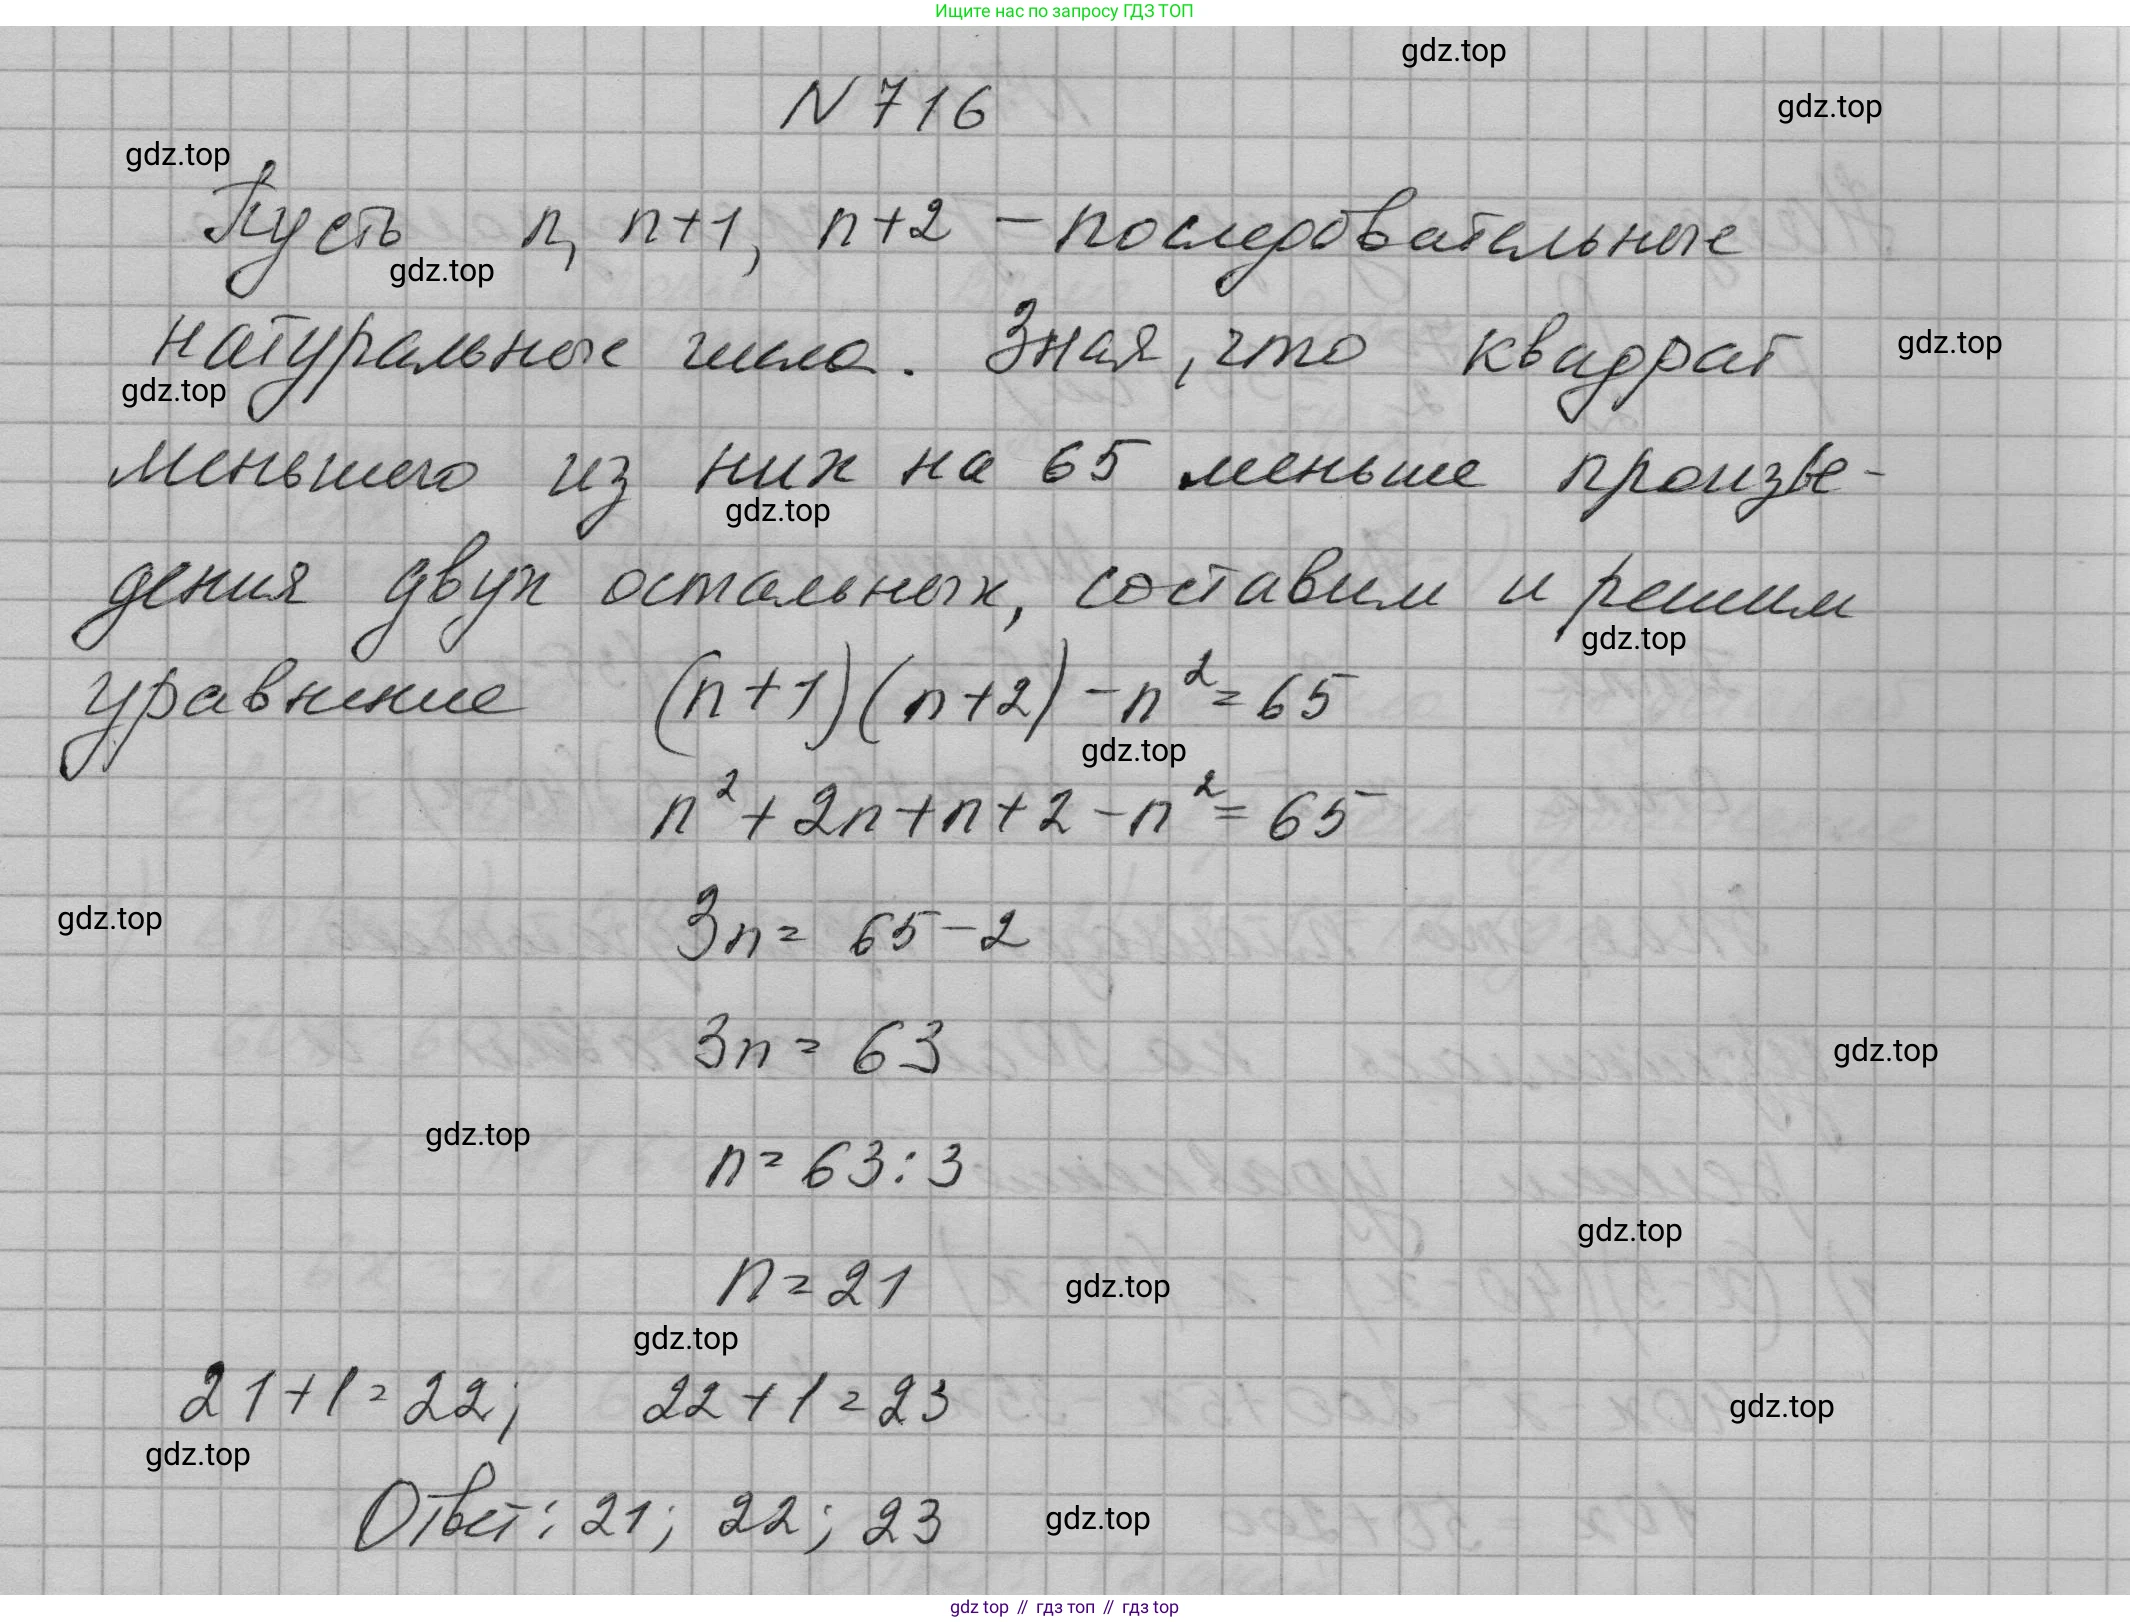 Ищите нас по запросу ГДЗ ТОП
gdz.top
N 716
gdz.top
gdz.top
Пусть n, n+1, n+2 - последовательные
gdz.top
натуральные числа. Зная, что квадрат
gdz.top
gdz.top
меньшего из них на 65 меньше произве-
gdz.top
дения двух остальных, составим и решим
gdz.top
уравнение (n+1)(n+2)-n²=65
gdz.top
n²+2n+n+2-n²=65
gdz.top
3n= 65-2
3n= 63
gdz.top
gdz.top
n=63:3
gdz.top
n=21
gdz.top
gdz.top
21+1=22; 22+1=23
gdz.top
gdz.top
Ответ: 21; 22; 23
gdz.top
gdz top // гдз топ // гдз top